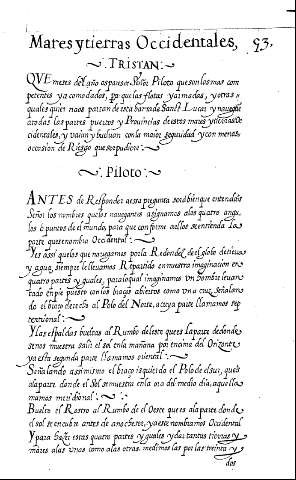 Mares y tierras Occidentales, 93.
TRISTAN.
QVE meses del año os parece Señor Piloto que son los mas com
petentes y acomodados, pa que las flotas y armadas, y otras
quales quier naos partan de esta barra de Sanct Lucar y naueguen
a todas las partes puertos y Prouincias destos mares y tierras oc
cidentales, y vaian y bueluan con la maior seguridad y con menos
occasion de Riesgo que se pudiere.
Piloto.
ANTES de Responder a esta pregunta sera bien que entendais
Señor los nombres que los nauegantes asignamos a los quatro angu
los o puntos del mundo, para que conforme a ellos se entienda la
parte que se nombra Occidental:
Y es assi que los que nauegamos por la Redondez de el globo de tierra
y agua, siempre le lleuamos Repartido en nuestra imaginacion en
quatro partes yguales, para lo qual imaginamos vn hombre leuan
tado en pie puesto con los braços abiertos como vna cruz, señalan
do el braço derecho al Polo del Norte, a cuya parte llamamos sep
tentrional:
Y las espaldas bueltas al Rumbo del leste que es la parte de donde
se nos muestra salir el sol en la mañana por encima del Orizonte,
ya esta segunda parte llamamos oriental:
Señalando assimismo el braço izquierdo el Polo de el sur, que es
a la parte donde el Sol se muestra en la ora del medio dia, a que lla
mamos meridional:
Buelto el Rostro al Rumbo de el Oeste que es a la parte donde
el sol se encubre antes de anochecer, y a este nombramos Occidental
Y para hazer estas quatro partes yguales y de tantas tierras y
mares a las vnas como a las otras, medimos las por las treinta y
dos